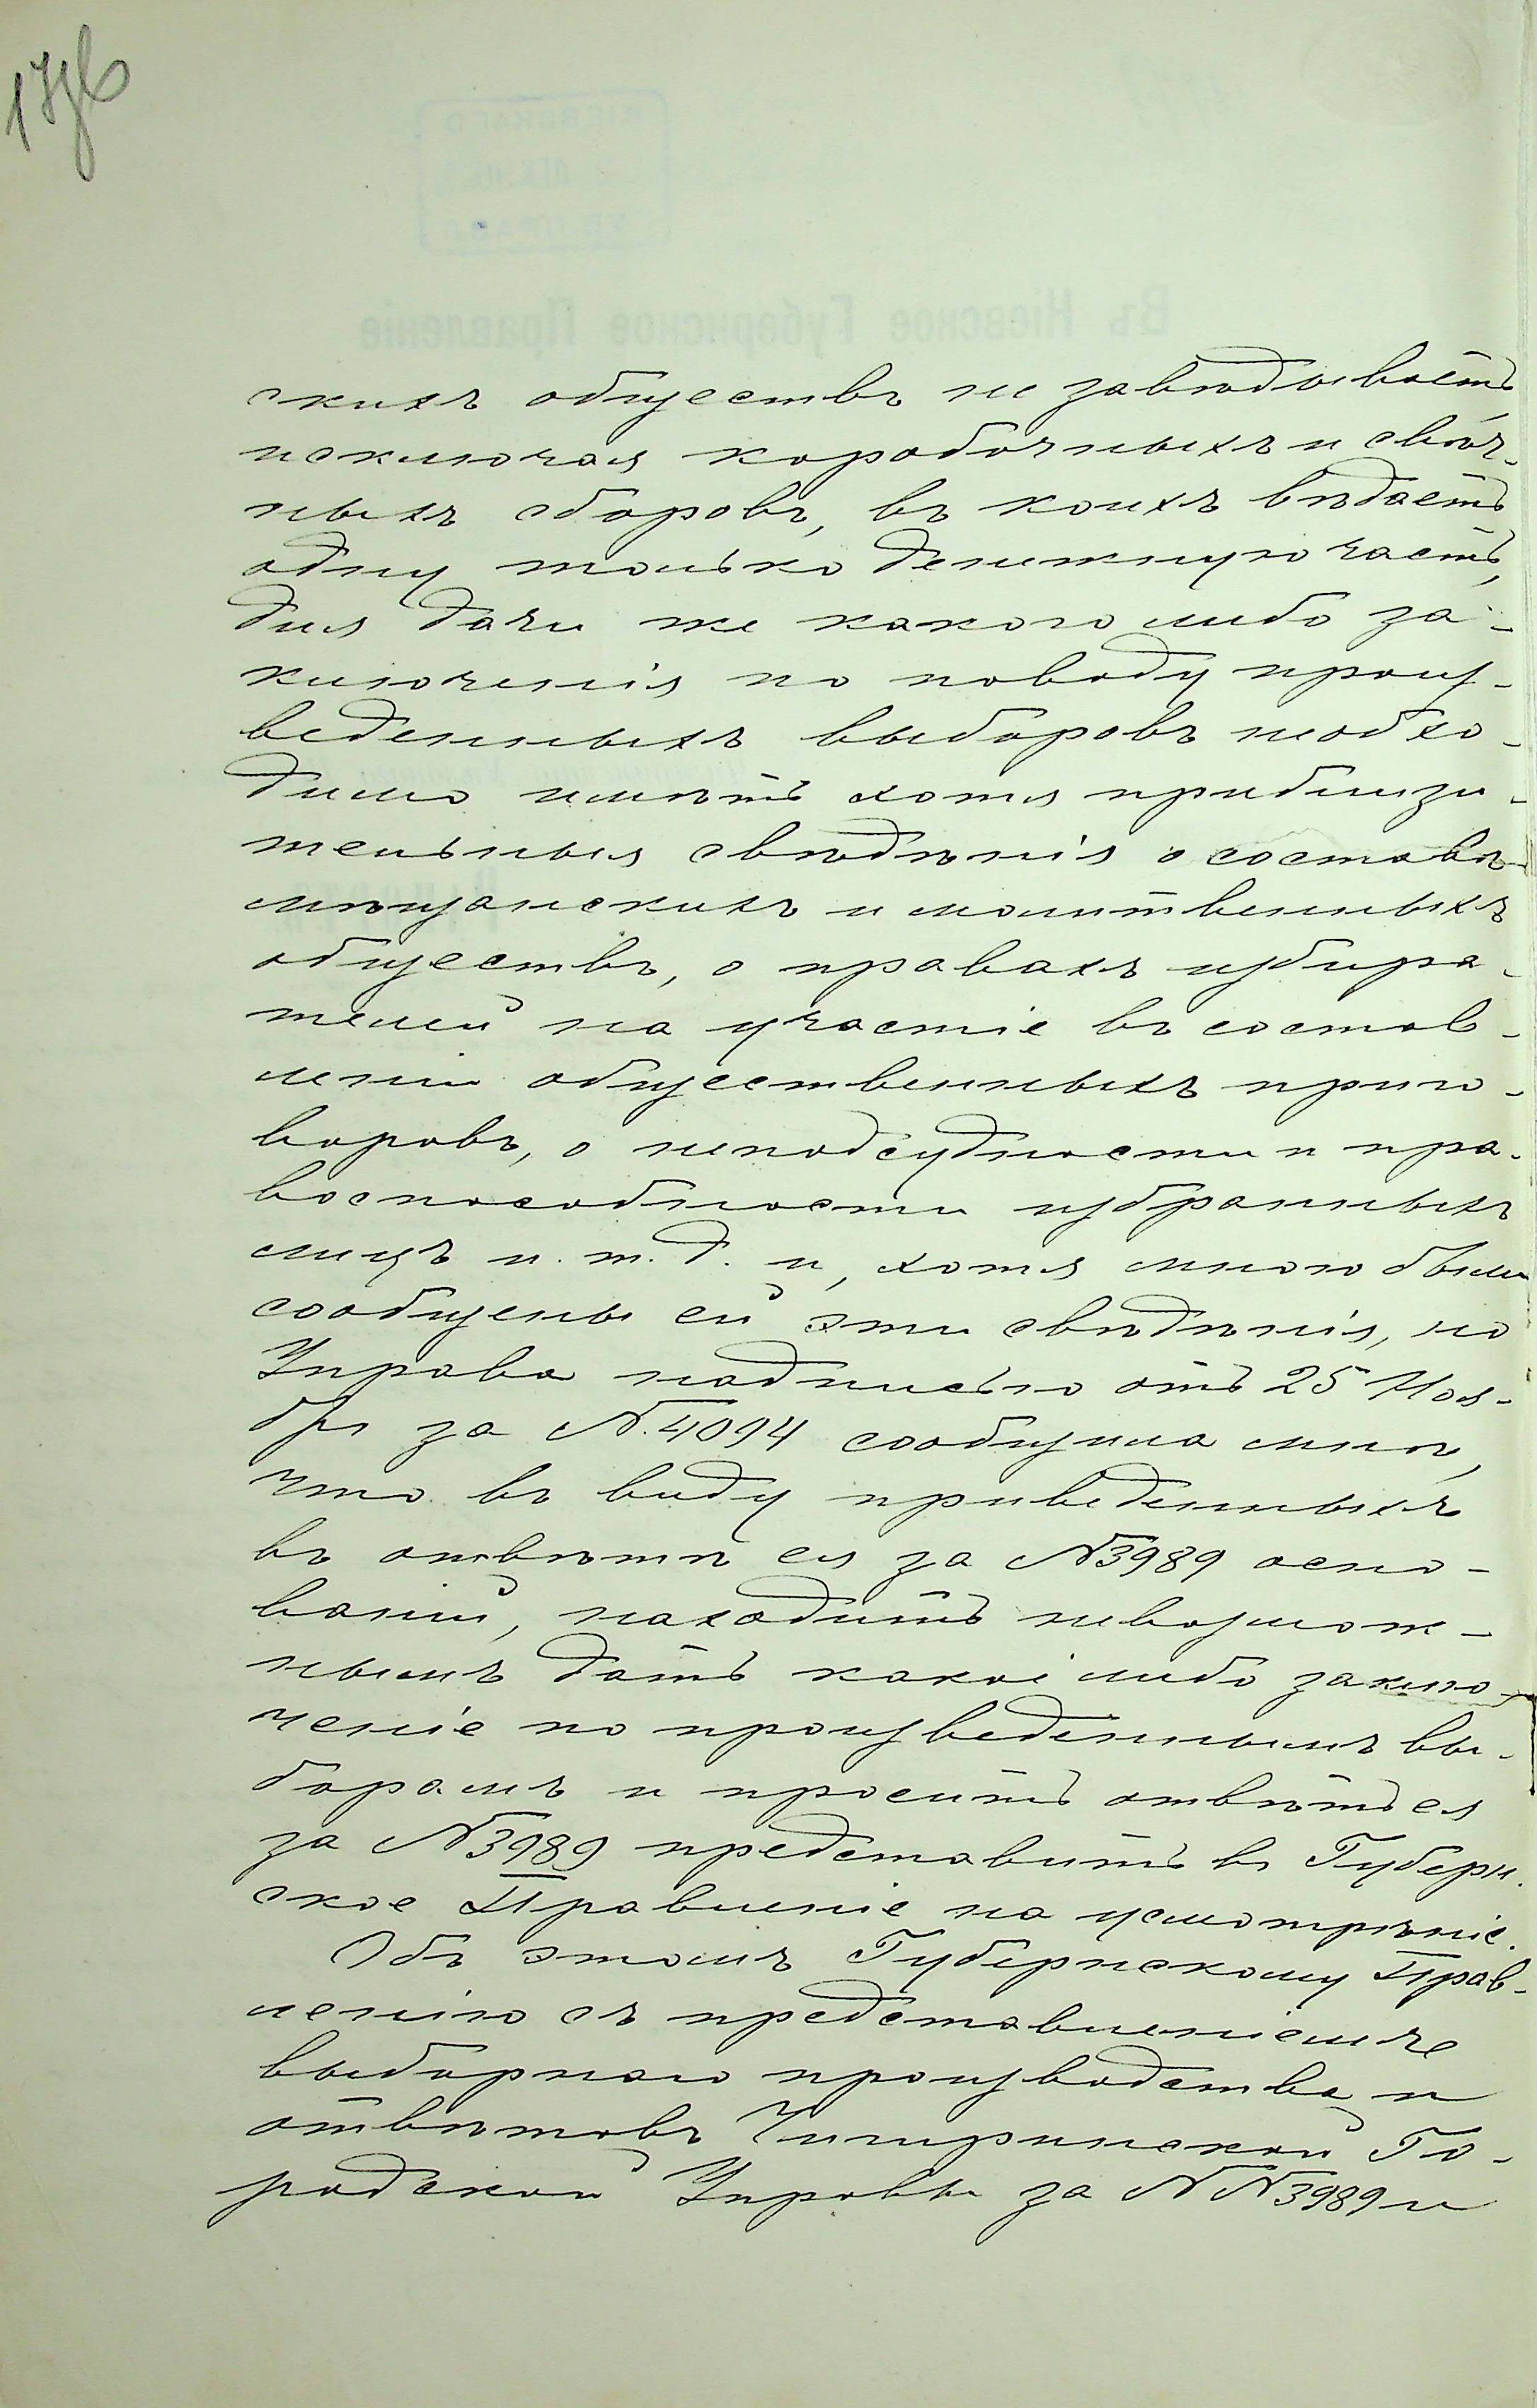 скихъ обществъ не завѣдываетъ
исключая коробочныхъ и свѣч-
ныхъ сборовъ, въ коихъ вѣдаетъ
одну только денежную часть,
для дачи же какого либо за-
ключенія по поводу произ-
веденныхъ выборовъ необхо-
димо имѣть хотя приблизи-
тельныя свѣдѣнія о составѣ
мѣщанскихъ и молитвенныхъ
обществъ, о правахъ избира-
телей на участіе въ состав-
леніи общественныхъ приго-
воровъ, о неподсудности и пра-
воспособности избранныхъ
лицъ и. т. д. и, хотя мною были
сообщены ей эти свѣдѣнія, но
Управа надписью отъ 25 Ноя-
бря за №. 4094 сообщила мнѣ,
что въ виду приведенныхъ
въ отвѣтѣ ея за №3989 осно-
ваній, находитъ невозмож-
нымъ дать какое либо заклю-
ченіе по произведеннымъ вы-
борамъ и проситъ отвѣтъ ея
за №3989 представить въ Губерн.
ское Правленіе на усмотрѣніе.
Объ этомъ Губернскому Прав-
ленію съ представленіемъ
выборнаго производства и
отвѣтовъ Чигиринской Го-
родской Управы за №№3989 и
Въ Кіевское Губернское Правленіе